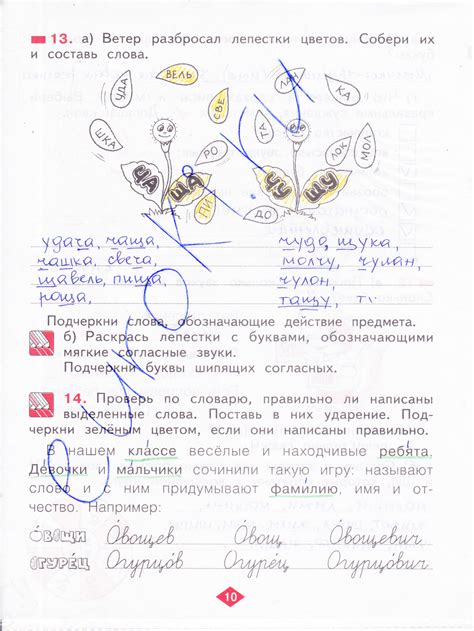 13. а) Ветер разбросал лепестки цветов. Собери их
и составь слова.
УДА
ВЕЛЬ
СВЕ
ШКА
РО
ПИ
ЧА
ЩА
ЛАН
КА
ТА
ЛОК
МОЛ
ДО
ЧУ
ЩУ
удача, чаща,
чашка, свеча,
щавель, пища,
роща,
чудо, щука,
молчу, чулан,
чулок,
тащу,
Подчеркни слова, обозначающие действие предмета.
б) Раскрась лепестки с буквами, обозначающими
мягкие согласные звуки.
Подчеркни буквы шипящих согласных.
14. Проверь по словарю, правильно ли написаны
выделенные слова. Поставь в них ударение. Под-
черкни зелёным цветом, если они написаны правильно.
В нашем классе весёлые и находчивые ребята.
Девочки и мальчики сочинили такую игру: называют
слово и с ним придумывают фамилию, имя и от-
чество. Например:
Овощи Овощев Овощ Овощевич
Огурец Огурцов Огурец Огурцович
10